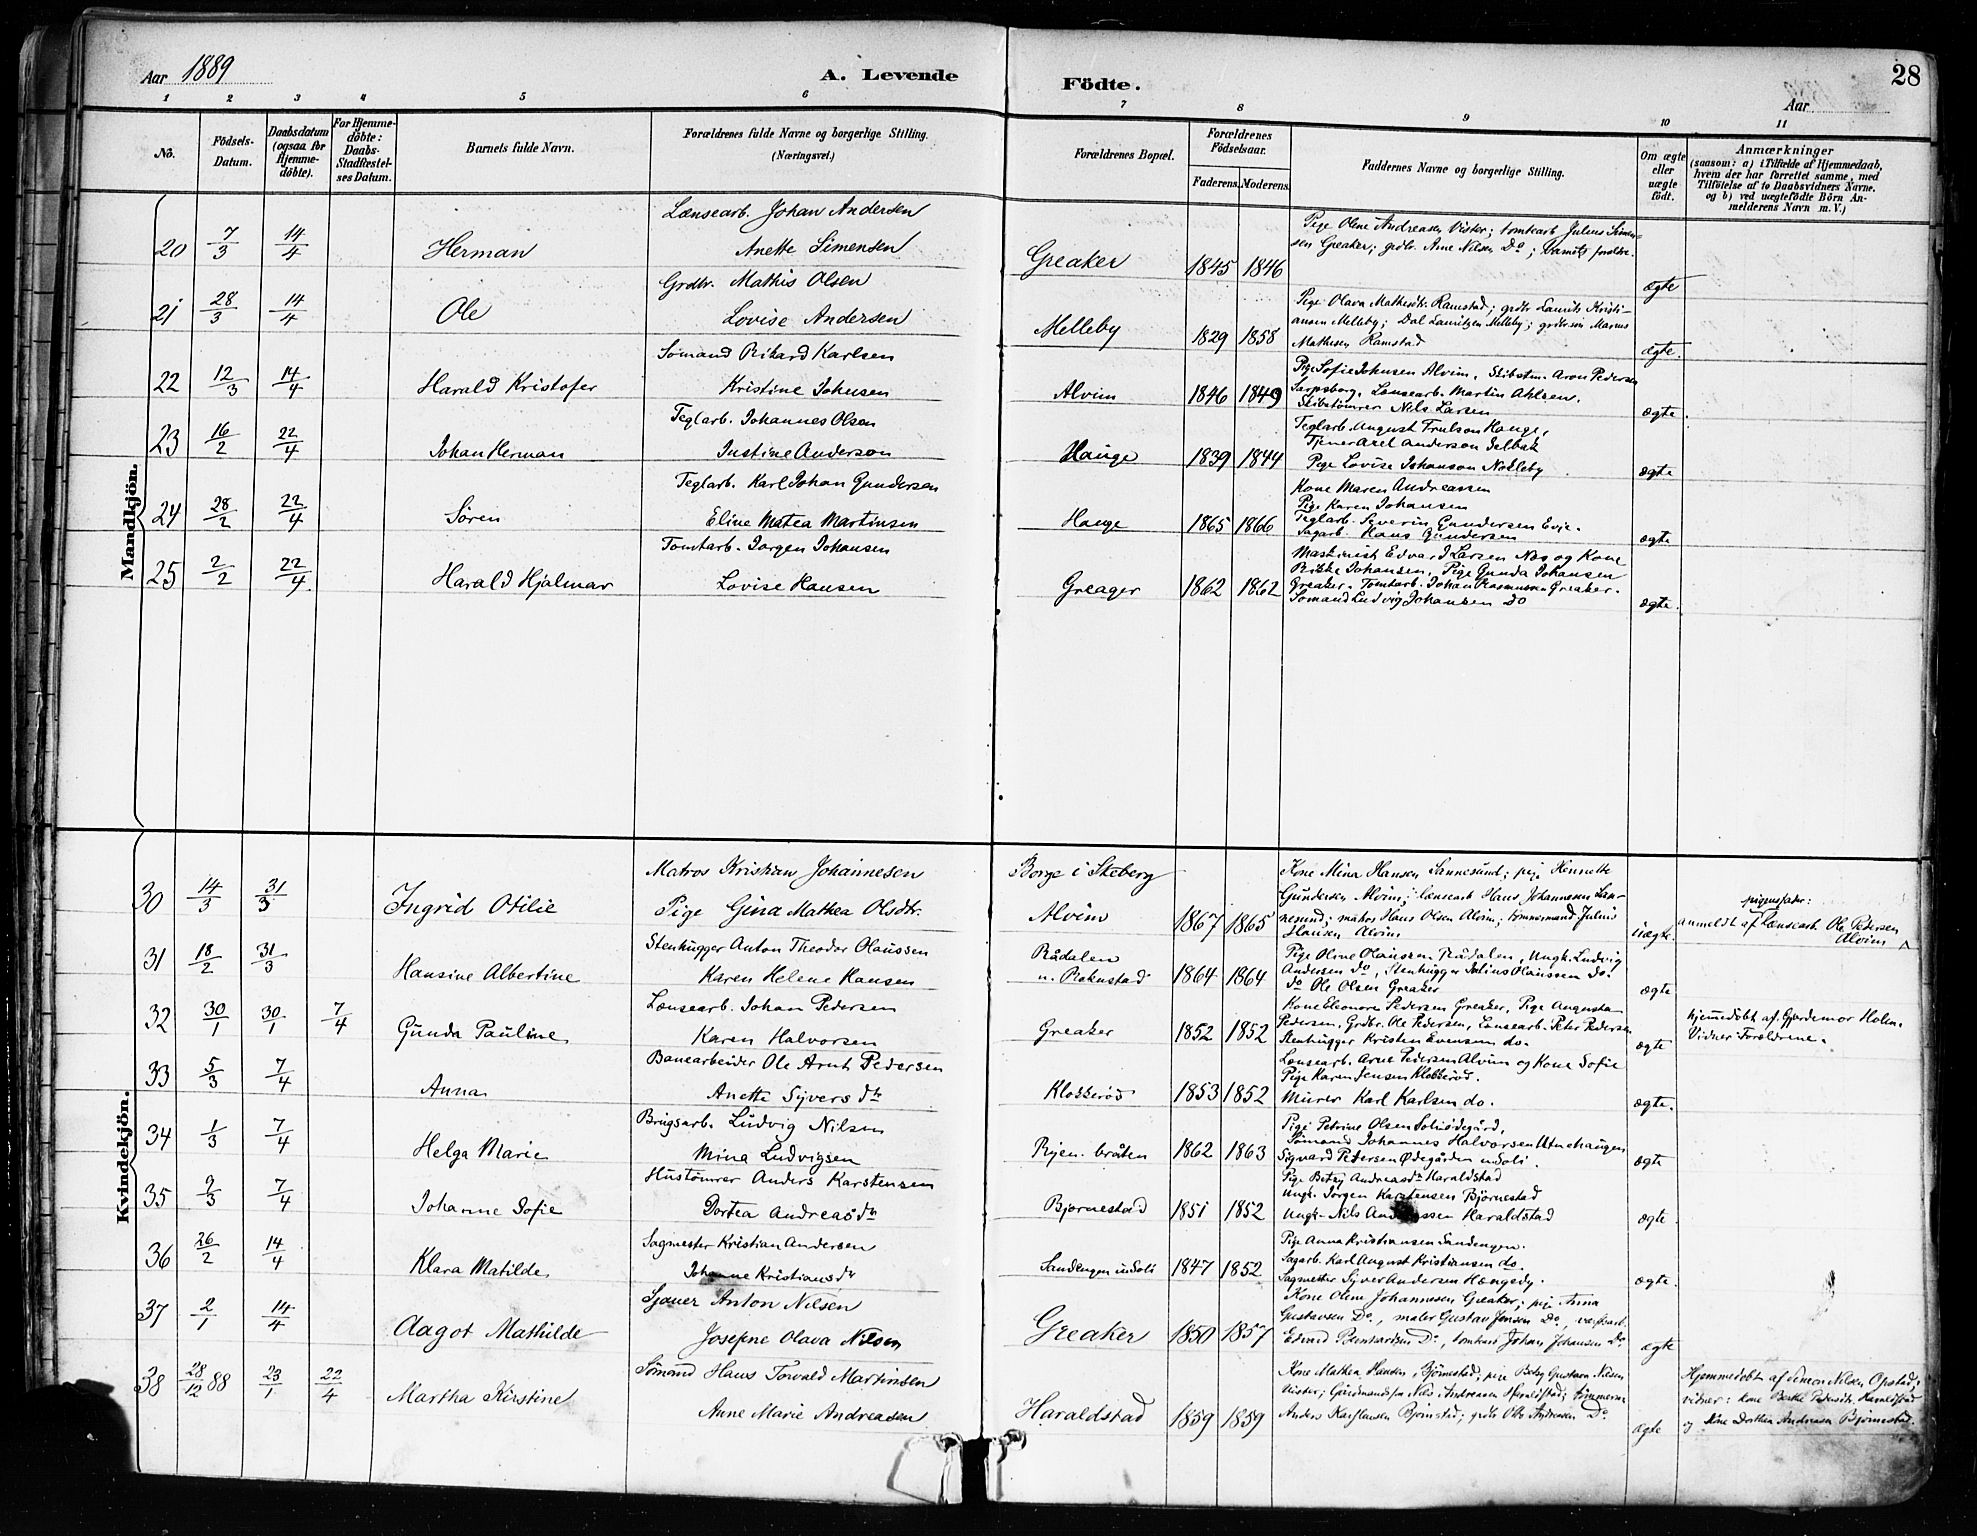 Aar 1889
A. Levende
Födte.
Aar
28
1 2 3 4 5 6 7 8 9 10 11
No.
Födsels-
Datum.
Daabsdatum
(ogsaa for
Hjemme-
döbte).
For Hjemme-
döbte:
Daabs-
Stadfestel-
ses Datum.
Barnets fulde Navn.
Forældrenes fulde Navne og borgerlige Stilling.
(Næringsvei.)
Forældrenes Bopæl.
Forældrenes
Födselsaar.
Faderens. Moderens.
Faddernes Navne og borgerlige Stilling.
Om ægte
eller
uægte
födt.
Anmærkninger
(saasom: a) i Tilfælde af Hjemmedaab,
hvem der har forrettet samme, med
Tilföielse af to Daabsvidners Navne.
og b) ved uægtefödte Börn An-
melderens Navn m. V.)
Mandkjön.
Lænsearb. Johan Andersen
20 7/3 14/4 Herman Anette Simensen Greaker 1845 1846 ægte
Pige Olene Andreasen Vister; tomtearb Julius Simen-
sen Greaker; grdbr. Arne Nilsen Do; Barnets forældre.
Grdbr. Mathis Olsen
21 28/3 14/4 Ole Lovise Andersen Melleby 1829 1858 ægte.
Pige Olava Mathisdtr. Ramstad; grdbr Laurits Kristi-
ansen Melleby; Dal Lauritzen Melleby; grdbrsøn Marius
Mathisen Ramstad
Sømand Rikard Karlsen
22 12/3 14/4 Harald Kristofer Kristine Johnsen Alvim 1846 1849 ægte.
Pige Sofie Johnsen Alvim, Skibstm. Aron Pedersen
Sarpsborg, Lænsearb. Martin Ahlsen.
Skibstømrer Nils Larsen
Teglarb. Johannes Olsen
23 16/2 22/4 Johan Herman Justine Anderson Hauge 1839 1844 ægte
Teglarb. August Hauge,
Tjener Axel Anderson Selbak
Pige Lovise Johanson Nolleby
Teglarb. Karl Johan Gunderson
24 28/2 22/4 Søren Eline Matea Martinsen Hauge 1865 1866 ægte
Kone Maren Andreassen
Pige Karen Johansen
Teglarb. Severin Gundersen Evje.
Sagarb. Hans Gundersen
Tomtarb. Jørgen Johansen
25 2/2 22/4 Harald Hjalmar Lovise Hansen Greager 1862 1862 ægte.
Maskinist Edvard Larsen Næs og Kone
Rikke Johansen, Pige Gunda Johansen
Greaker. Tomtarb. Johan Rasmussen Greaker.
Sømand Ludvig Johansen do
Kvindekjön.
Matros Kristian Johannesen Borge i Skeberg
30 14/3 31/3 Ingrid Otilie Pige Gina Mathea Olsdtr. Alvim 1867 1865 uægte.
Kone Mina Hansen Sannesund; pige Hennette
Gundersen Alvim; lænsearb Hans Johannesen San-
nesund; matros Hans Olsen Alvim; tømmermand Julius
Hansen Alvim
pigens fader:
anmeldt af Lænsearb. Ole Petersen
Alvim
Stenhugger Anton Theodor Olaussen
31 18/2 31/3 Hansine Albertine Karen Helene Hansen Rådalen
u. Rokustad 1864 1864 ægte
Pige Oline Olaussen Rådalen, Ungk. Ludvig
Andersen do, Stenhugger Julius Olaussen do.
do Ole Olsen Greaker
Lænsearb. Johan Pedersen
32 30/1 30/1 7/4 Gunda Pauline Karen Halvorsen Greaker 1852 1852 ægte
Kone Eleonora Pedersen Greaker, Pige Augusta
Pedersen, Grdbr. Ole Pedersen, Lænsearb. Peter Pedersen
Stenhugger Kristen Evensen do.
hjemmedøbt af Gjordemor Holm.
Vidner Forældrene.
Banearbeider Ole Arnt Pedersen
33 5/3 7/4 Anna Anette Syversdtr Klokkerød 1853 1852 ægte.
Lænsearb. Arne Pedersen Alvim og Kone Sofie
Pige Karen Jensen Klokkerød.
Murer Karl Karlsen do.
Brugsarb. Ludvig Nilsen
34 1/3 7/4 Helga Marie Mina Ludvigsen Ryen. bråten 1862 1863 ægte
Pige Petrine Olsen Soliødegård,
Sømand Johannes Halvorsen Utnehaugen
Sigvard Petersen Ødegården u. Soli.
Hustømrer Anders Karstensen
35 2/3 7/4 Johanne Sofie Dortea Andreasdtr Bjørnestad 1851 1852 ægte
Pige Betzy Andreasdtr Haraldstad
Ungk. Jørgen Karstensen Bjørnestad
Ungk. Nils Andreassen Haraldstad
Sagmester Kristian Andersen
36 26/2 14/4 Klara Matilde Johanne Kristiansdtr Sandengen u. Soli 1847 1852 ægte.
Pige Anna Kristiansen Sandengen.
Sagarb. Karl August Kristiansen do.
Sagmester Syver Andersen Hængedy.
Sjauer Anton Nilsen
37 2/1 14/4 Aagot Mathilde Josefine Olava Nilsen Greaker 1850 1857 ægte
Kone Olene Johannesen Greaker; pige Anna
Gustavsen Do, maler Gustav Jensen Do, værftsarb
Edvard Bernhardsen Do, tomtearb Johan Johansen Do
Sømand Hans Torvald Martinsen
38 28/12 88 23/1 22/4 Martha Kirstine Anne Marie Andreasen Haraldstad 1859 1859 ægte
Kone Mathea Hansen, Bjørnestad, pige Betsy Gustava Nilsen
Vister; Gårdmandsøn Nils Andreasen Haraldstad; tømmerm
Anders Karstensen Bjørnstad; grdbr Otto Andreasen Do.
Hjemmedøbt af Simon Nilsen Opstad,
vidner: kone Berthe Pedersdtr. Haraldstad
og kone Dorthea Andreasen Bjørnestad.